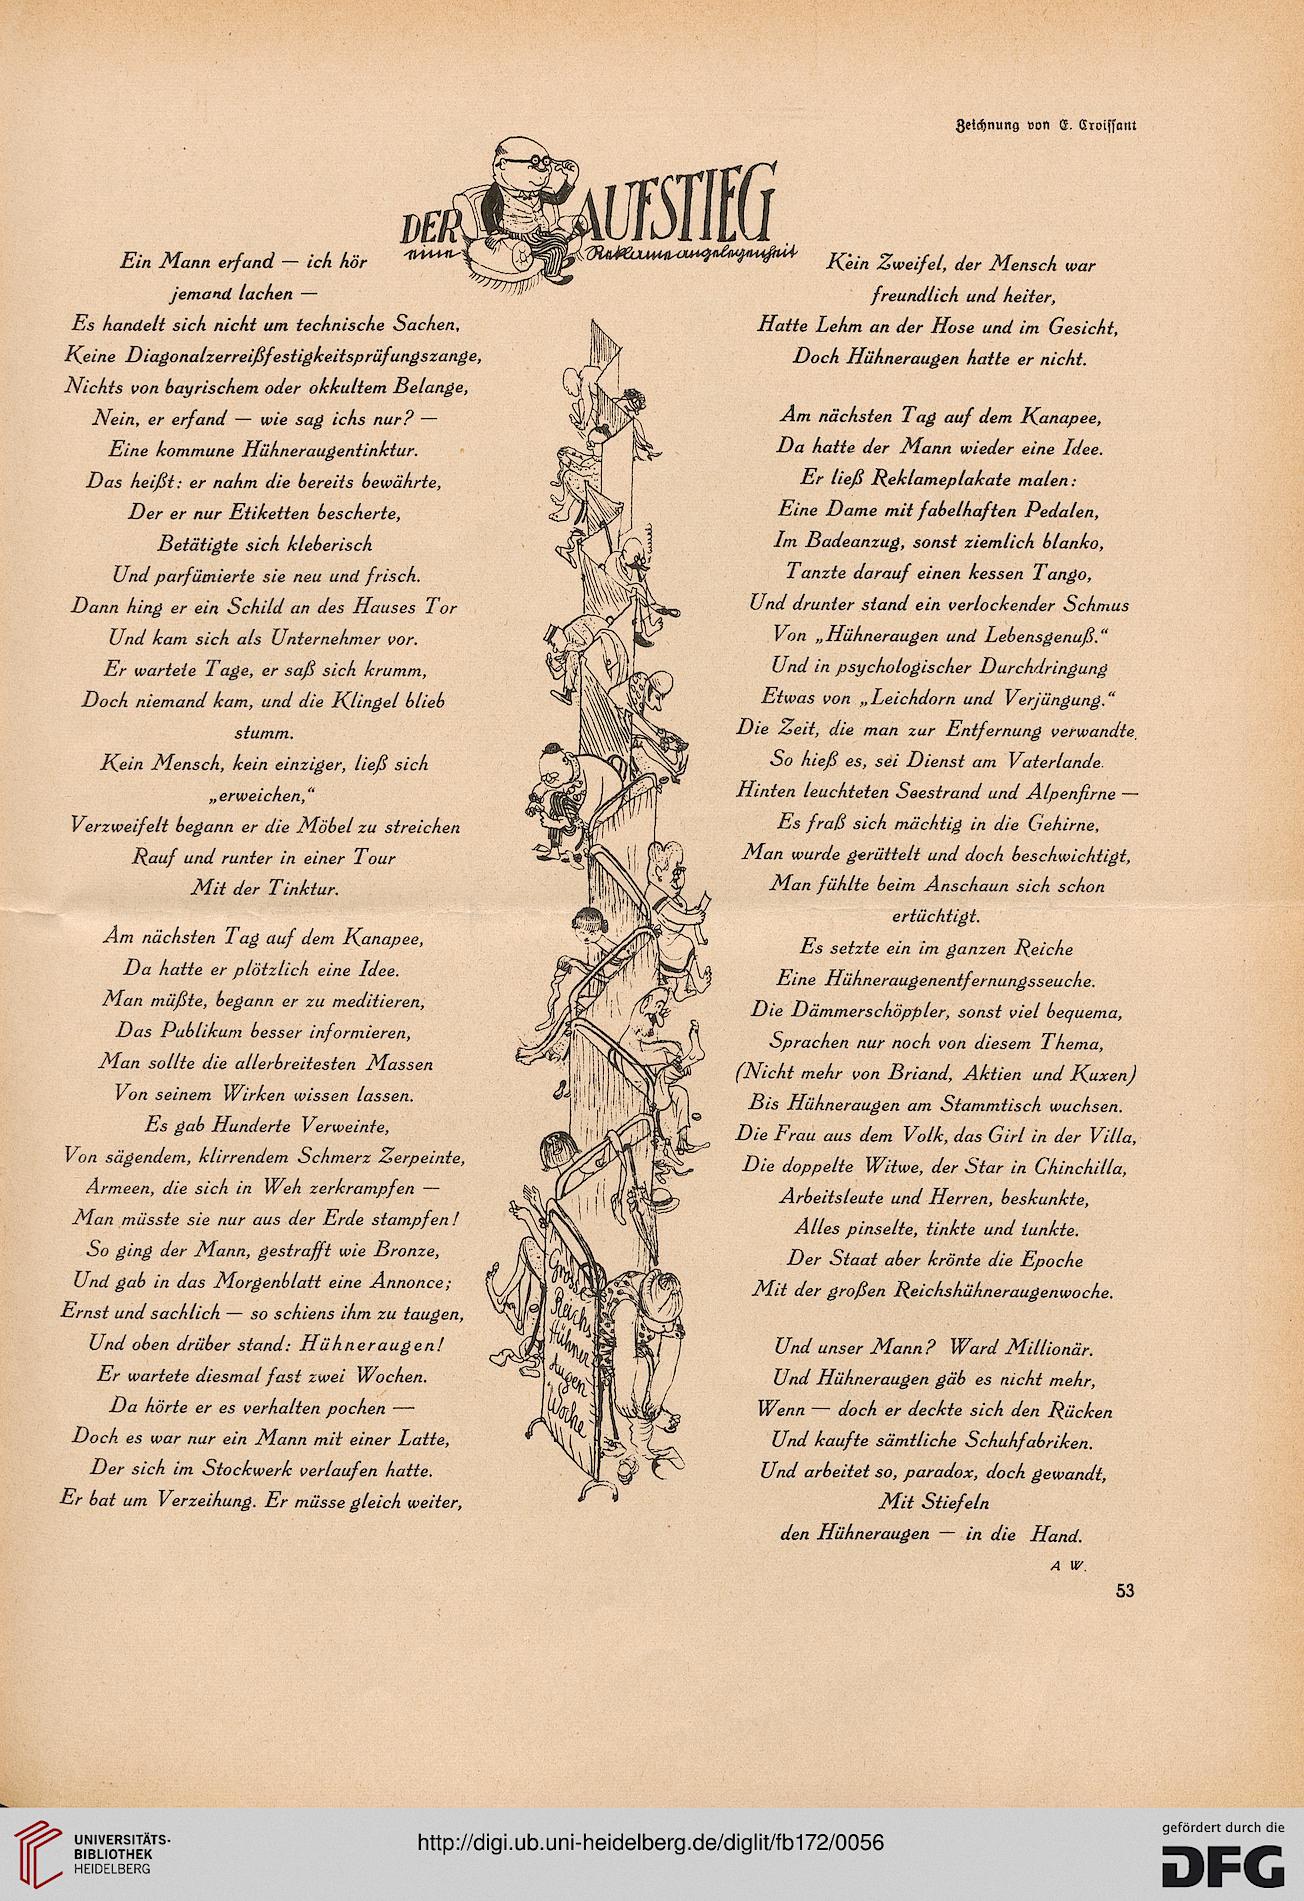 Zeichnung von E. Croissant
DER AUFSTIEG
eine Reklameangelegenheit
Ein Mann erfand — ich hör
jemand lachen —
Es handelt sich nicht um technische Sachen,
Keine Diagonalzerreißfestigkeitsprüfungszange,
Nichts von bayrischem oder okkultem Belange,
Nein, er erfand — wie sag ichs nur? —
Eine kommune Hühneraugentinktur.
Das heißt: er nahm die bereits bewährte,
Der er nur Etiketten bescherte,
Betätigte sich kleberisch
Und parfümierte sie neu und frisch.
Dann hing er ein Schild an des Hauses Tor
Und kam sich als Unternehmer vor.
Er wartete Tage, er saß sich krumm,
Doch niemand kam, und die Klingel blieb
stumm.
Kein Mensch, kein einziger, ließ sich
„erweichen,“
Verzweifelt begann er die Möbel zu streichen
Rauf und runter in einer Tour
Mit der Tinktur.
Am nächsten Tag auf dem Kanapee,
Da hatte er plötzlich eine Idee.
Man müßte, begann er zu meditieren,
Das Publikum besser informieren,
Man sollte die allerbreitesten Massen
Von seinem Wirken wissen lassen.
Es gab Hunderte Verweinte,
Von sägendem, klirrendem Schmerz Zerpeinte,
Armeen, die sich in Weh zerkrampfen —
Man müsste sie nur aus der Erde stampfen!
So ging der Mann, gestrafft wie Bronze,
Und gab in das Morgenblatt eine Annonce;
Ernst und sachlich — so schiens ihm zu taugen,
Und oben drüber stand: Hühneraugen!
Er wartete diesmal fast zwei Wochen.
Da hörte er es verhalten pochen —
Doch es war nur ein Mann mit einer Latte,
Der sich im Stockwerk verlaufen hatte.
Er bat um Verzeihung. Er müsse gleich weiter,
Gross
Reichs
Hühner
Augen
Woche
Kein Zweifel, der Mensch war
freundlich und heiter,
Hatte Lehm an der Hose und im Gesicht,
Doch Hühneraugen hatte er nicht.
Am nächsten Tag auf dem Kanapee,
Da hatte der Mann wieder eine Idee.
Er ließ Reklameplakate malen:
Eine Dame mit fabelhaften Pedalen,
Im Badeanzug, sonst ziemlich blanko,
Tanzte darauf einen kessen Tango,
Und drunter stand ein verlockender Schmus
Von „Hühneraugen und Lebensgenuß.“
Und in psychologischer Durchdringung
Etwas von „Leichdorn und Verjüngung.“
Die Zeit, die man zur Entfernung verwandte,
So hieß es, sei Dienst am Vaterlande.
Hinten leuchteten Seestrand und Alpenfirne —
Es fraß sich mächtig in die Gehirne,
Man wurde gerüttelt und doch beschwichtigt,
Man fühlte beim Anschaun sich schon
ertüchtigt.
Es setzte ein im ganzen Reiche
Eine Hühneraugenentfernungsseuche.
Die Dämmerschöppler, sonst viel bequema,
Sprachen nur noch von diesem Thema,
(Nicht mehr von Briand, Aktien und Kuxen)
Bis Hühneraugen am Stammtisch wuchsen.
Die Frau aus dem Volk, das Girl in der Villa,
Die doppelte Witwe, der Star in Chinchilla,
Arbeitsleute und Herren, beskunkte,
Alles pinselte, tinkte und tunkte.
Der Staat aber krönte die Epoche
Mit der großen Reichshühneraugenwoche.
Und unser Mann? Ward Millionär.
Und Hühneraugen gäb es nicht mehr,
Wenn — doch er deckte sich den Rücken
Und kaufte sämtliche Schuhfabriken.
Und arbeitet so, paradox, doch gewandt,
Mit Stiefeln
den Hühneraugen — in die Hand.
A W.
53
UNIVERSITÄTS-
BIBLIOTHEK
HEIDELBERG
http://digi.ub.uni-heidelberg.de/diglit/fb172/0056
gefördert durch die
DFG